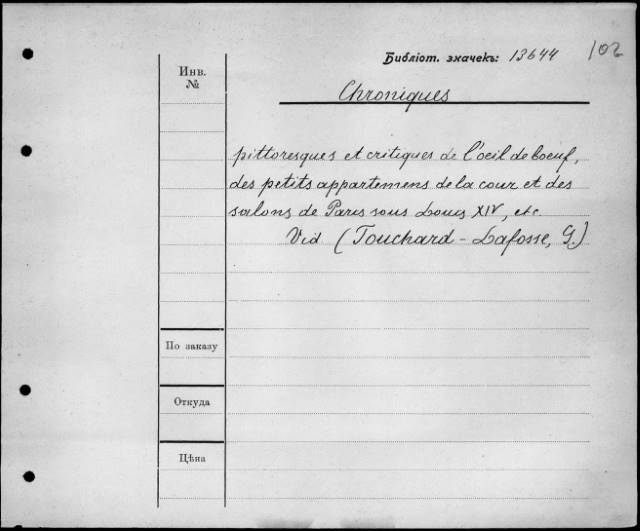 102
Библіот. значекъ: 13644
Инв.
№
Chroniques
pittoresques et critiques de l'oeil de boeuf,
des petits appartemens de la cour et des
salons de Paris sous Louis XIV, etc.
Vid (Touchard-Lafosse, G.)
По заказу
Откуда
Цѣна